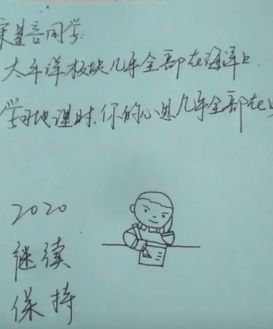 基言同学:
太平洋板块几乎全部在海洋上.
学习地理时,你的心思几乎全部在
2020
继续
保持